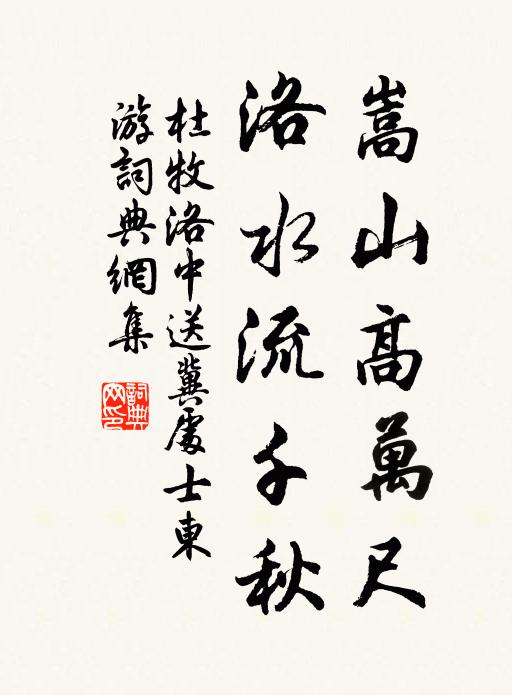 嵩山高萬尺
洛水流千秋
杜牧洛中送冀處士東
游詞典網集
詞典
网印